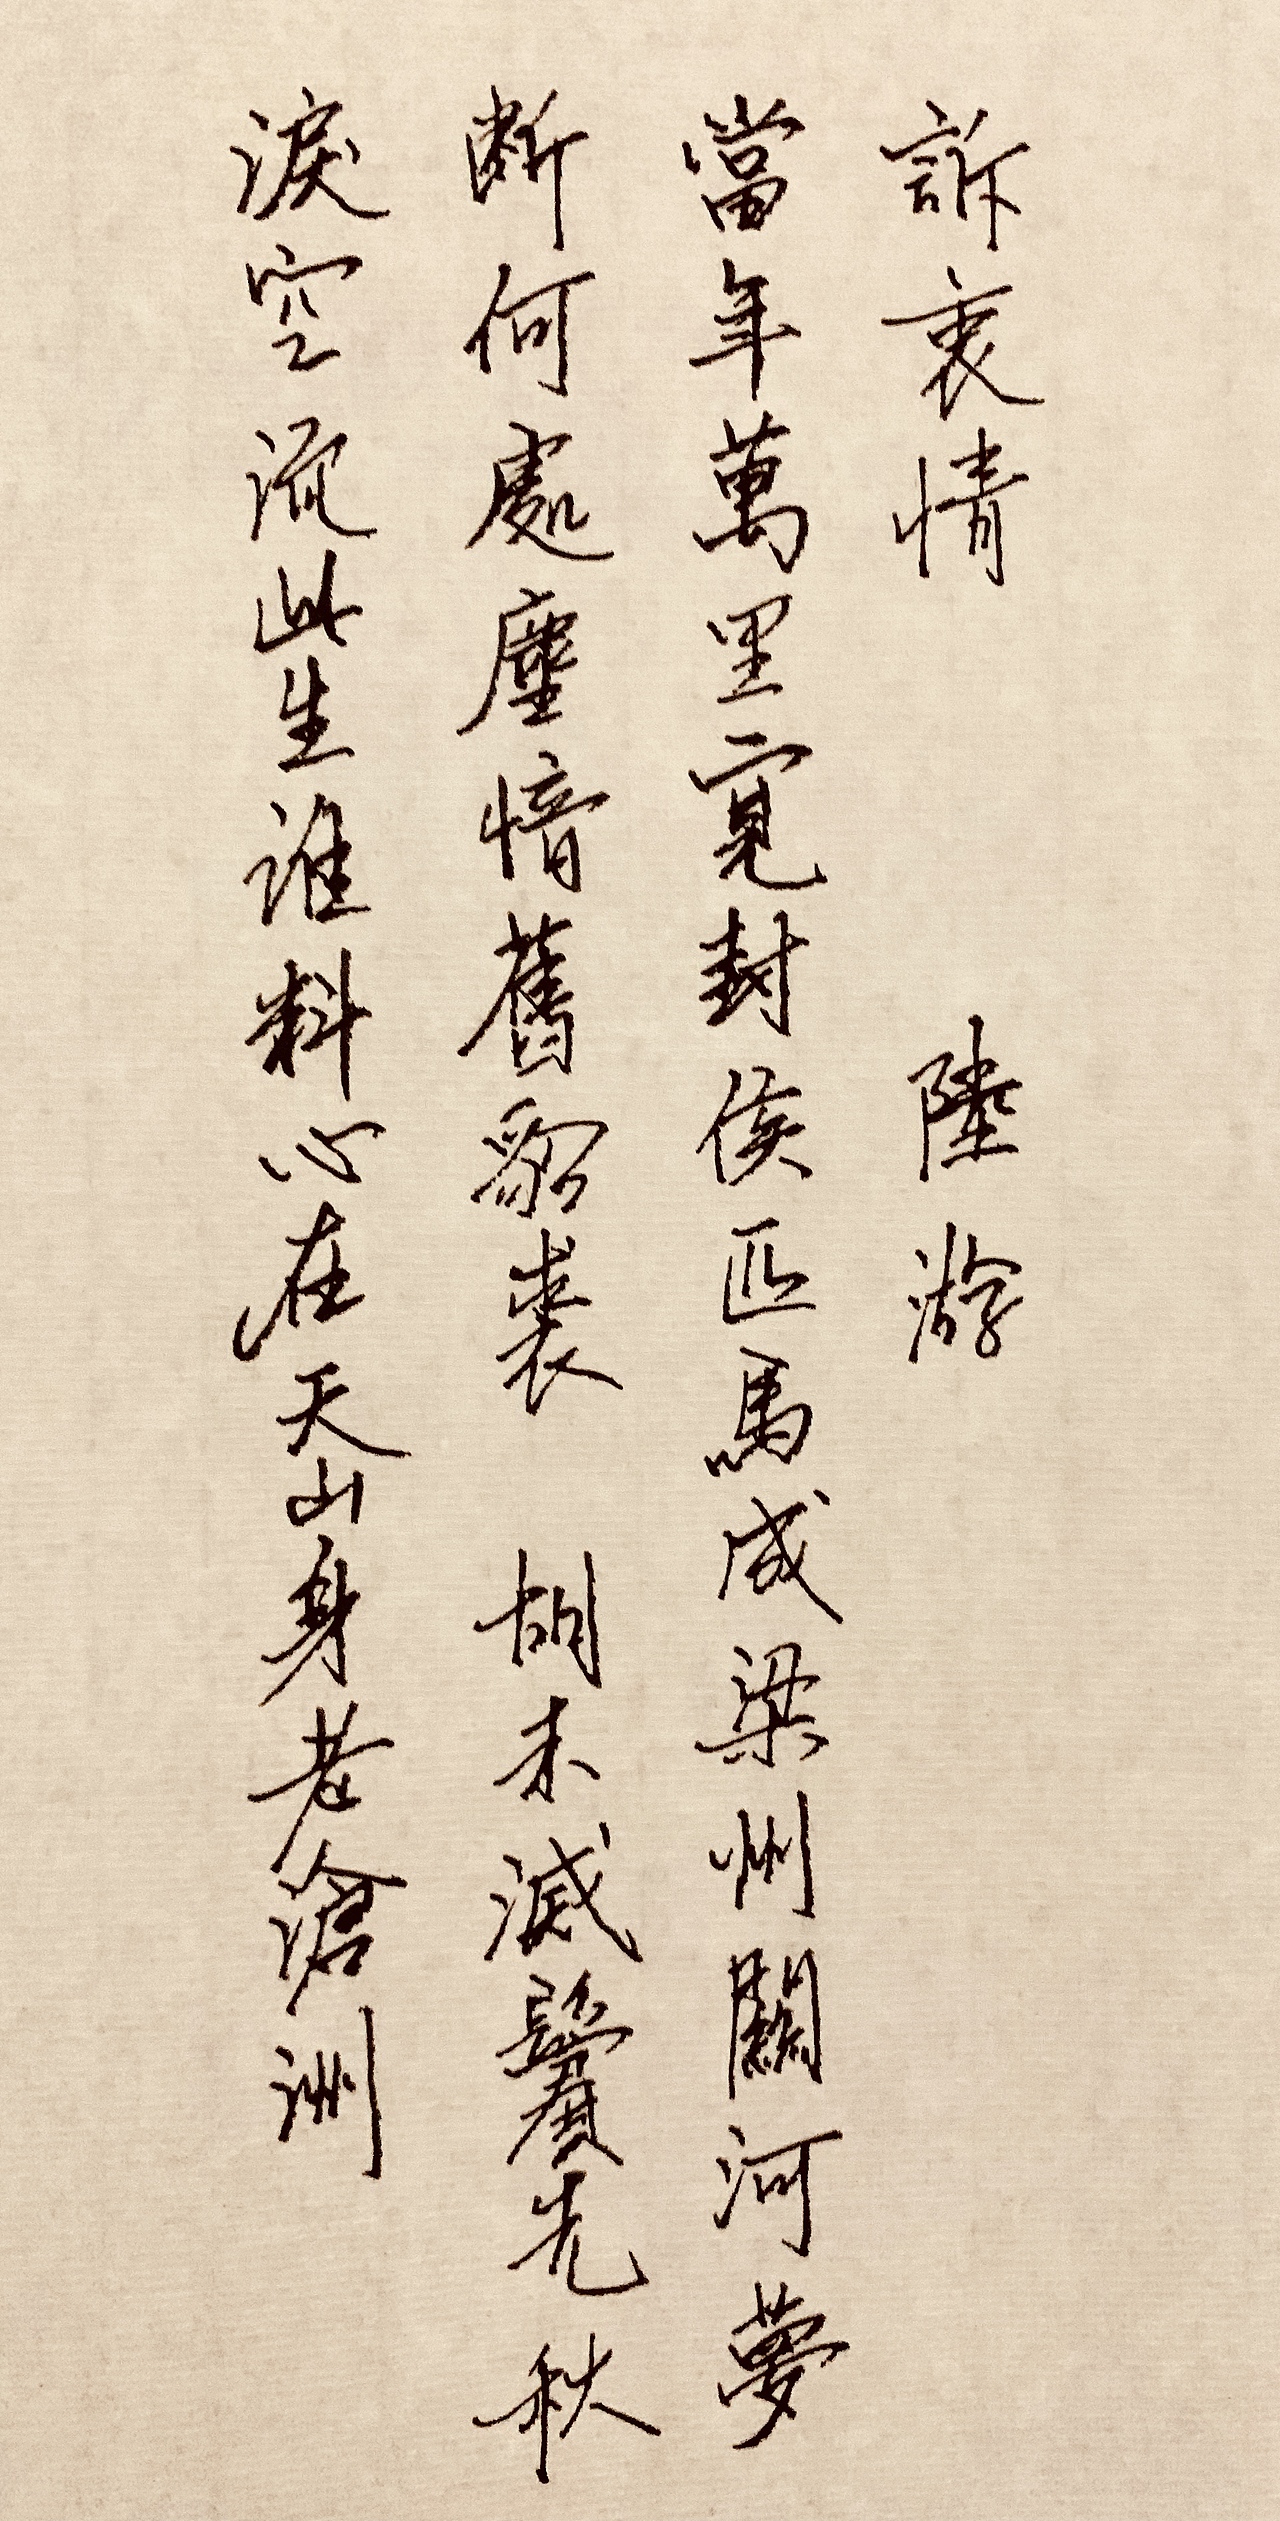 訴衷情 陸游
當年萬里覓封侯匹馬戍梁州關河夢
斷何處塵暗舊貂裘 胡未滅鬢先秋
淚空流此生誰料心在天山身老滄洲